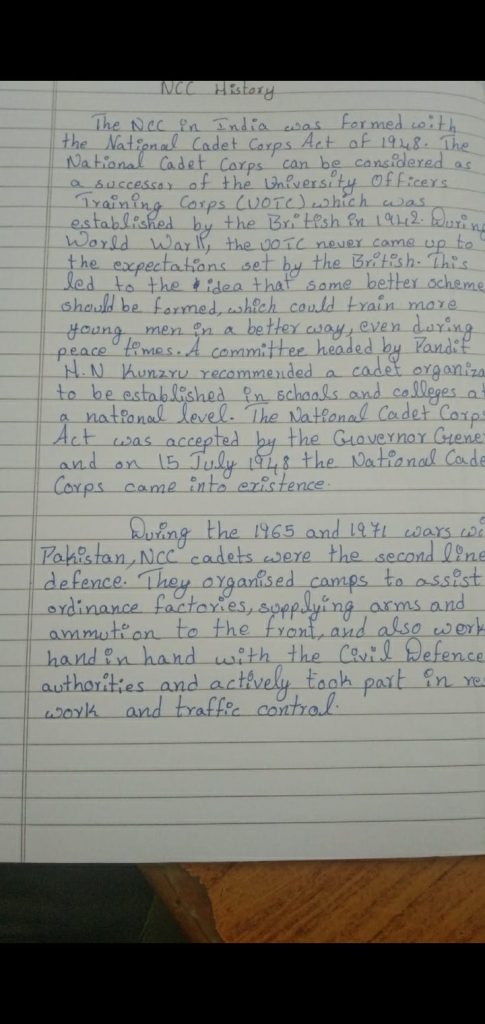 NCC History
The NCC in India was formed with
the National Cadet Corps Act of 1948. The
National Cadet Corps can be considered as
a successor of the University Officers
Training Corps (UOTC) which was
established by the British in 1942. During
World War II, the UOTC never came up to
the expectations set by the British. This
led to the idea that some better scheme
should be formed, which could train more
young men in a better way, even during
peace times. A committee headed by Pandit
H.N Kunzru recommended a cadet organiza
to be established in schools and colleges at
a national level. The National Cadet Corps
Act was accepted by the Governor Gene
and on 15 July 1948 the National Cade
Corps came into existence.
During the 1965 and 1971 wars wi
Pakistan, NCC cadets were the second line
defence. They organised camps to assist
ordinance factories, supplying arms and
ammution to the front, and also work
hand in hand with the Civil Defence
authorities and actively took part in re
work and traffic control.